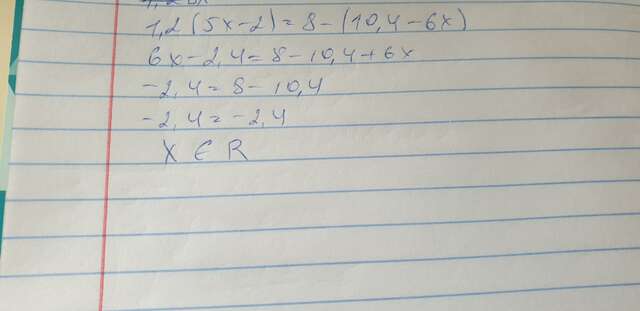 1,2(5x-2)=8-(10,4-6x)
6x-2,4=8-10,4+6x
-2,4=8-10,4
-2,4=-2,4
X ∈ R